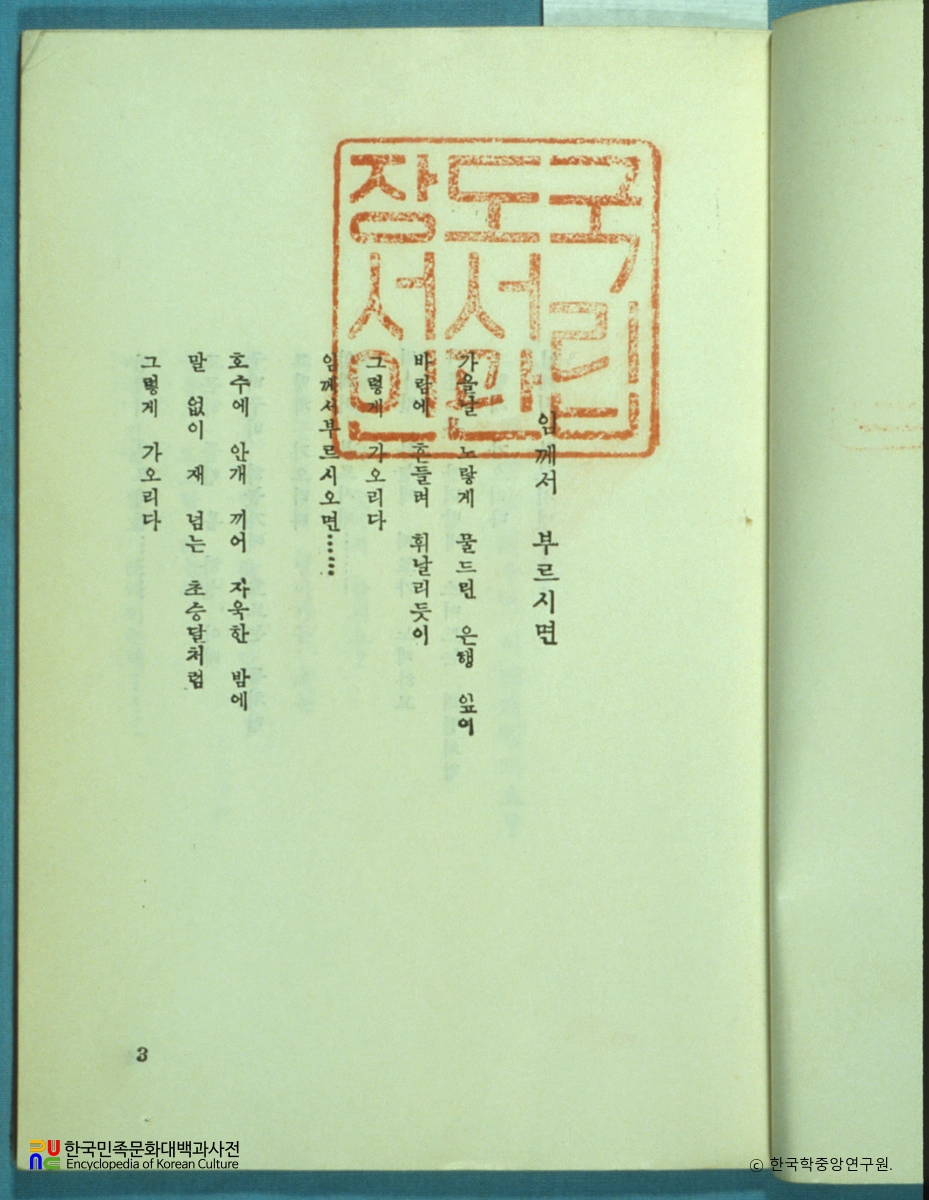 국립
도서관
장서인
임께서 부르시면
가을날 노랗게 물드린 은행 잎이
바람에 흔들려 휘날리듯이
그렇게 가오리다
임께서부르시오면……
호수에 안개 끼어 자욱한 밤에
말 없이 재 넘는 초승달처럼
그렇게 가오리다
3
한국민족문화대백과사전
Encyclopedia of Korean Culture
ⓒ 한국학중앙연구원.